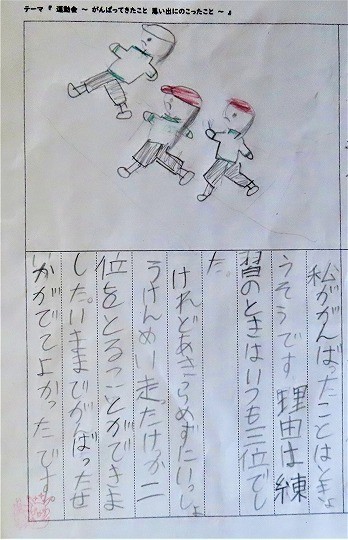 テーマ『 運動会 ～ がんばってきたこと 思い出にのこったこと ～ 』
私ががんばったことはときょ
うそうです 理由は練
習のときはいつも三位でし
た。
けれどあきらめずにいっしょ
うけんめい走ったけっか二
位をとることができま
した。いままでがんばったせ
いかがでてよかったです。